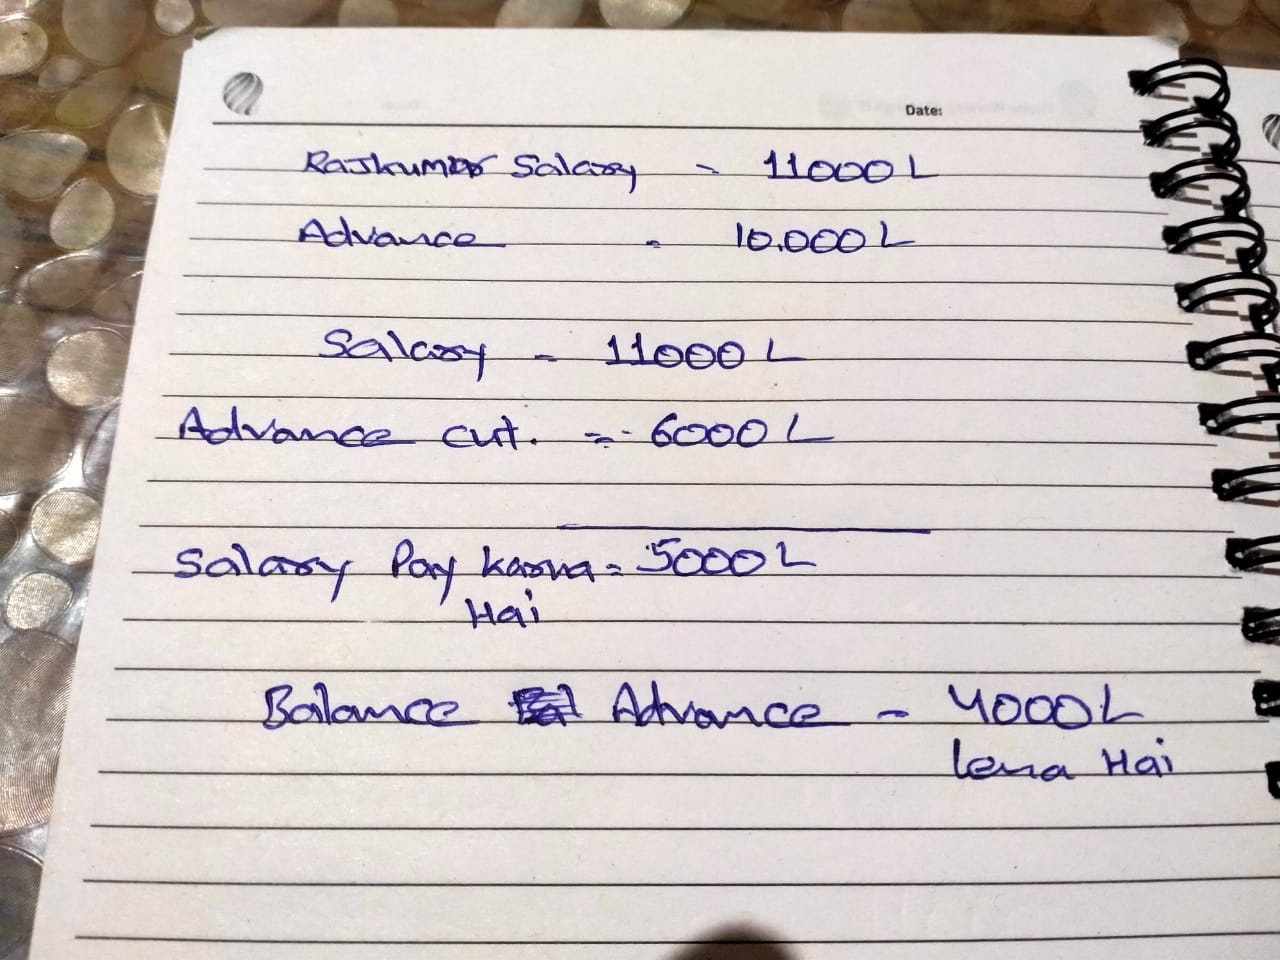 Date:
Rajkumar Salary - 11000 L
Advance - 10.000 L
Salary - 11000 L
Advance cut. = - 6000 L
Salary Pay karna = 5000 L
Hai
Balance Advance - 4000 L
lena Hai